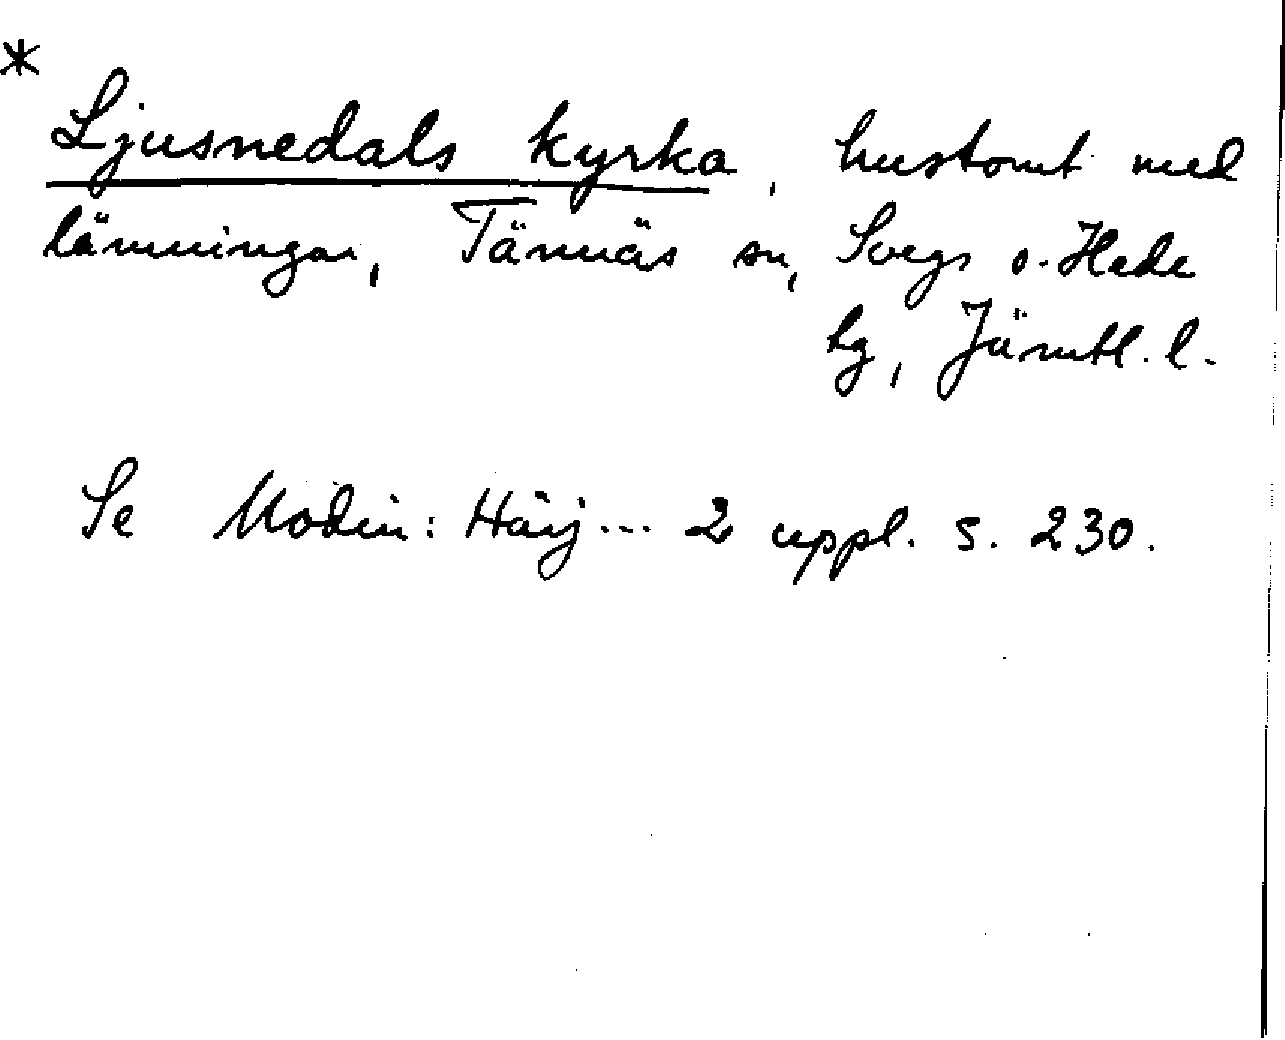 *
Ljusnedals kyrka, hustomt med
lämningar, Tännäs sn, Svegs o. Hede
hg, Jämtl. l.
Se Modin: Härj... 2 uppl. s. 230.